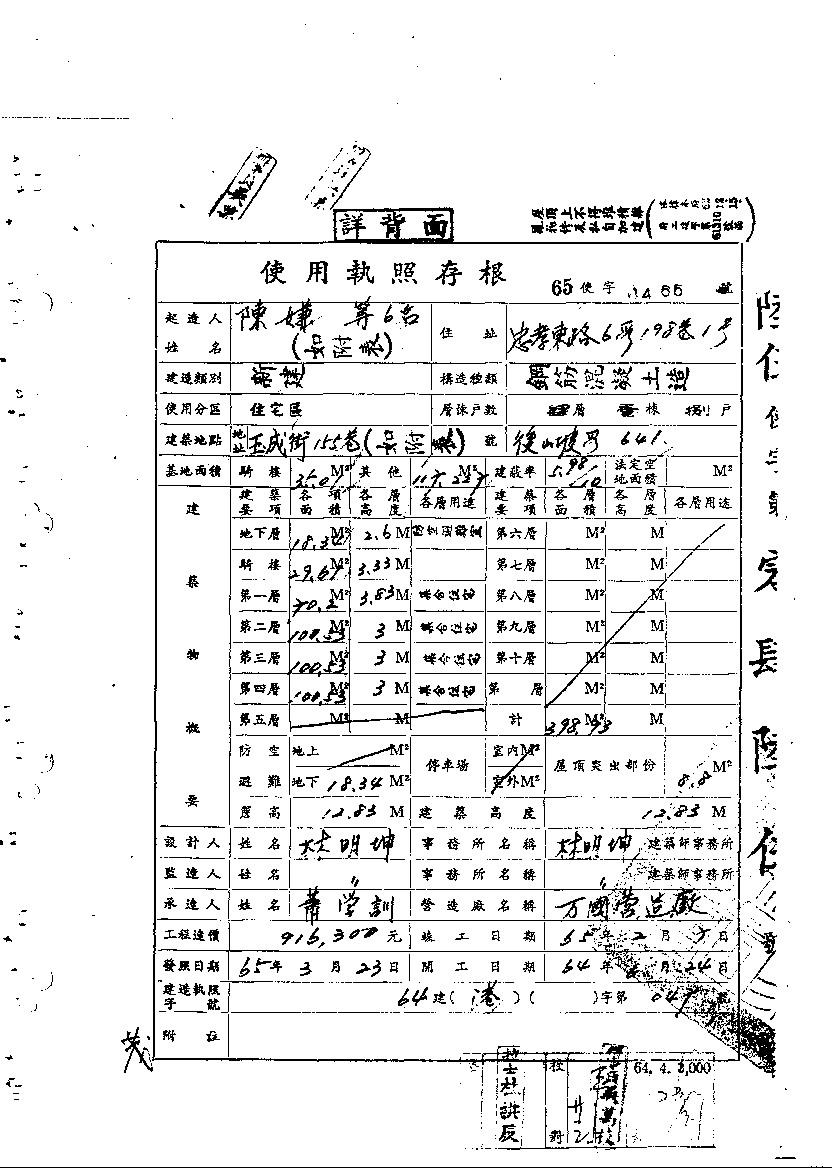 詳背面
屋頂上不得堆積雜
物件及私自加建
使用執照存根
65使字 0466 號
起造人姓名 陳 等6名(如附表) 住址 忠孝東路6段198巷1号
建造類別 新建 構造種類 鋼筋混凝土造
使用分區 住宅區 層棟戶數 層 棟 戶
建築地點 地址玉成街155巷(如附表)號 後山坡段 641
基地面積 騎樓 M² 其他 117.227 M² 建蔽率 5.98/10 法定空地面積 M²
建築物概要
建築要項 各項面積 各層高度 各層用途 建築要項 各層面積 各層高度 各層用途
地下層 18.34 M² 2.6 M 第六層 M² M
騎樓 29.67 M² 3.33 M 第七層 M² M
第一層 70.2 M² 3.83 M 集合住宅 第八層 M² M
第二層 100.53 M² 3 M 集合住宅 第九層 M² M
第三層 100.53 M² 3 M 集合住宅 第十層 M² M
第四層 100.53 M² 3 M 集合住宅 第 層 M² M
第五層 M² M 計 398.93 M² M
防空避難 地上 M² 停車場 室內M² 屋頂突出部份 8.8 M²
地下 18.34 M² 室外M²
簷高 12.83 M 建築高度 12.83 M
設計人 姓名 林明坤 事務所名稱 林明坤 建築師事務所
監造人 姓名 〃 事務所名稱 〃 建築師事務所
承造人 姓名 蕭学訓 營造廠名稱 万國營造廠
工程造價 916,300 元 竣工日期 65年2月 日
發照日期 65年3月23日 開工日期 64年 月24日
建造執照字號 64建(港)( )字第 號
附註
64.4.2,000